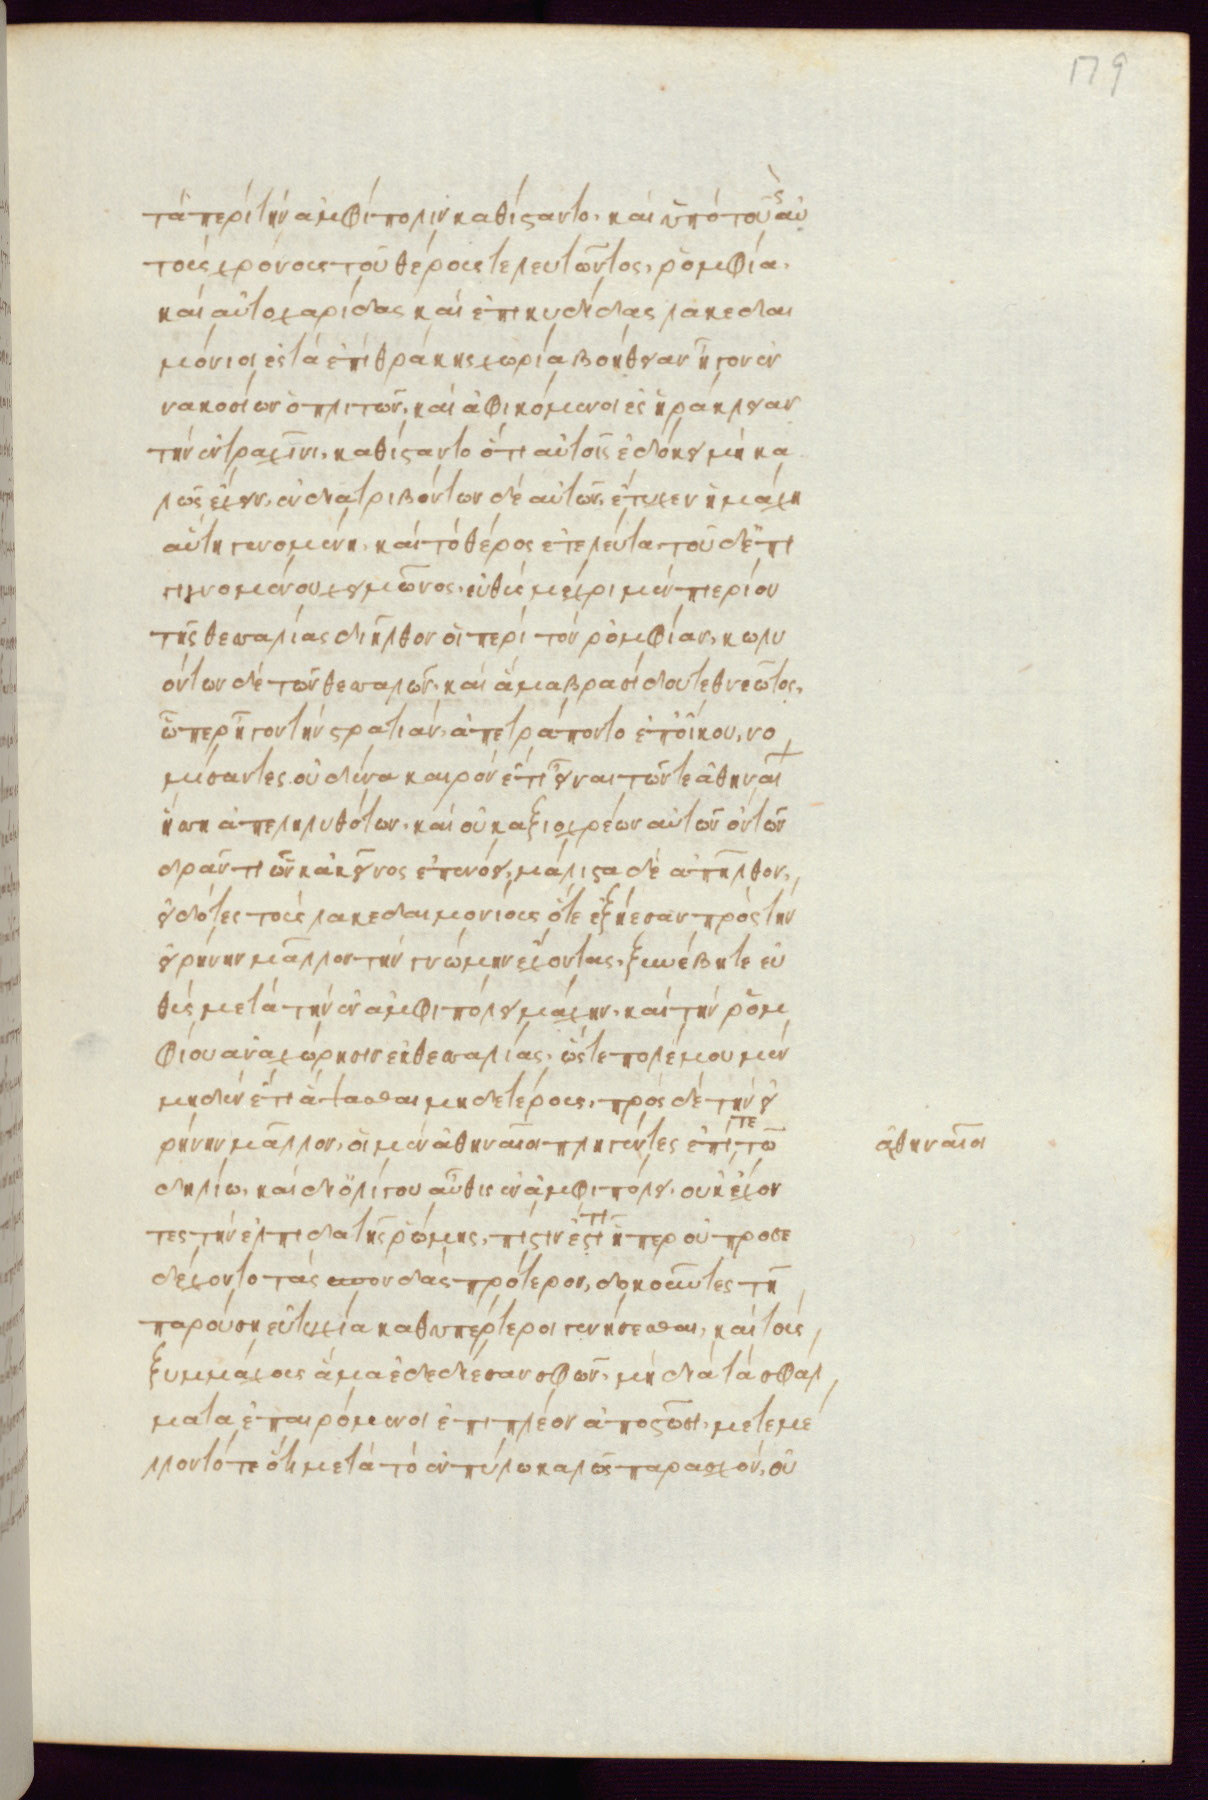 179
τὰ περὶ τὴν ἀμφίπολιν καθίσταντο. καὶ ὑπὸ τοὺς αὐ
τοὺς χρόνους τοῦ θέρους τελευτῶντος, ῥαμφίας
καὶ αὐτοχαρίδας καὶ ἐπικυδίδας λακεδαι
μόνιοι ἐς τὰ ἐπὶ θράκης χωρία βοήθειαν ἦγον ἐν
νακοσίων ὁπλιτῶν. καὶ ἀφικόμενοι ἐς ἡράκλειαν
τὴν ἐν τραχῖνι, καθίσταντο ὅτι αὐτοῖς ἐδόκει μὴ κα
λῶς ἔχειν. ἐνδιατριβόντων δὲ αὐτῶν, ἔτυχεν ἡ μάχη
αὕτη γενομένη. καὶ τὸ θέρος ἐτελεύτα. τοῦ δ' ἐπι
γιγνομένου χειμῶνος, εὐθὺς μέχρι μὲν πιερίου
τῆς θεσσαλίας διῆλθον οἱ περὶ τὸν ῥαμφίαν, κωλυ
όντων δὲ τῶν θεσσαλῶν. καὶ ἅμα βρασίδου τεθνεῶτος,
ᾧπερ ἦγον τὴν στρατιάν, ἀπετράποντο ἐπ' οἴκου, νο
μίσαντες οὐδένα καιρὸν ἔτι εἶναι τῶν τε ἀθηναί
ἥσση ἀπεληλυθότων. καὶ οὐκ ἀξιοχρέων αὐτῶν ὄντων
δρᾶν τι ὧν κἀκεῖνος ἐπενόει, μάλιστα δὲ ἀπῆλθον,
εἰδότες τοὺς λακεδαιμονίους ὅτε ἐξῄεσαν πρὸς τὴν
εἰρήνην μᾶλλον τὴν γνώμην ἔχοντας. ξυνέβη τε εὐ
θὺς μετὰ τὴν ἐν ἀμφιπόλει μάχην. καὶ τὴν ῥαμ
φίου ἀναχώρησιν ἐκ θεσσαλίας, ὥστε πολέμου μὲν
μηδὲν ἔτι ἅψασθαι μηδετέρους, πρὸς δὲ τὴν εἰ
ρήνην μᾶλλον. οἱ μὲν ἀθηναῖοι πληγέντες ἐπί τε τῶ
δηλίω, καὶ δι' ὀλίγου αὖθις ἐν ἀμφιπόλει. οὐκ ἔχον
τες τὴν ἐλπίδα τῆς ῥώμης, πιστὴν ἔτι ᾗπερ οὐ προσε
δέχοντο τὰς σπονδὰς πρότερον, δοκοῦντες τῇ
παρούσῃ εὐτυχία καθυπέρτεροι γενήσεσθαι. καὶ τοὺς
ξυμμάχους ἅμα ἐδεδίεσαν σφῶν, μὴ διὰ τὰ σφάλ
ματα ἐπαιρόμενοι ἐπιπλέον ἀποστῶσι. μετεμέ
λλοντό τε ὅτι μετὰ τὸ ἐν πύλω καλῶς παρασχόν, οὐ
ἀθηναῖοι